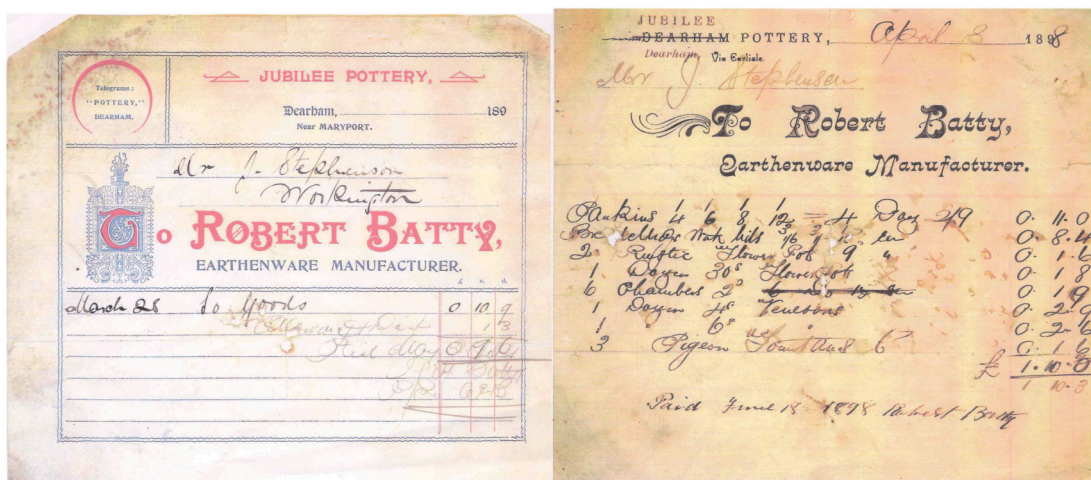 Telegrams:
"POTTERY,"
DEARHAM.
JUBILEE POTTERY,
Dearham, 189
Near MARYPORT.
Mr J. Stephenson
Workington
To ROBERT BATTY,
EARTHENWARE MANUFACTURER.
£ s. d.
March 28 To Goods 0 10 9
1 3
0 9 6
JUBILEE
DEARHAM POTTERY, April 8 1898
Dearham, Via Carlisle.
Mr J. Stephenson
To Robert Batty,
Earthenware Manufacturer.
4 6 8 12 = 4 Doz 2/9 0. 11. 0
0. 8.
2 Rustic Flower Pots 9" " 0. 1. 6
1 Dozen 30s Flower Pots 0. 1. 8
6 Chambers 2s 0. 1 9
1 Dozen 4s 0. 2. 9
1 " 6s " 0. 2. 6
3 Pigeon Fountains 6d 0. 1 6
£ 1. 10.
1 10. 3
Paid June 18 1898 Robert Batty